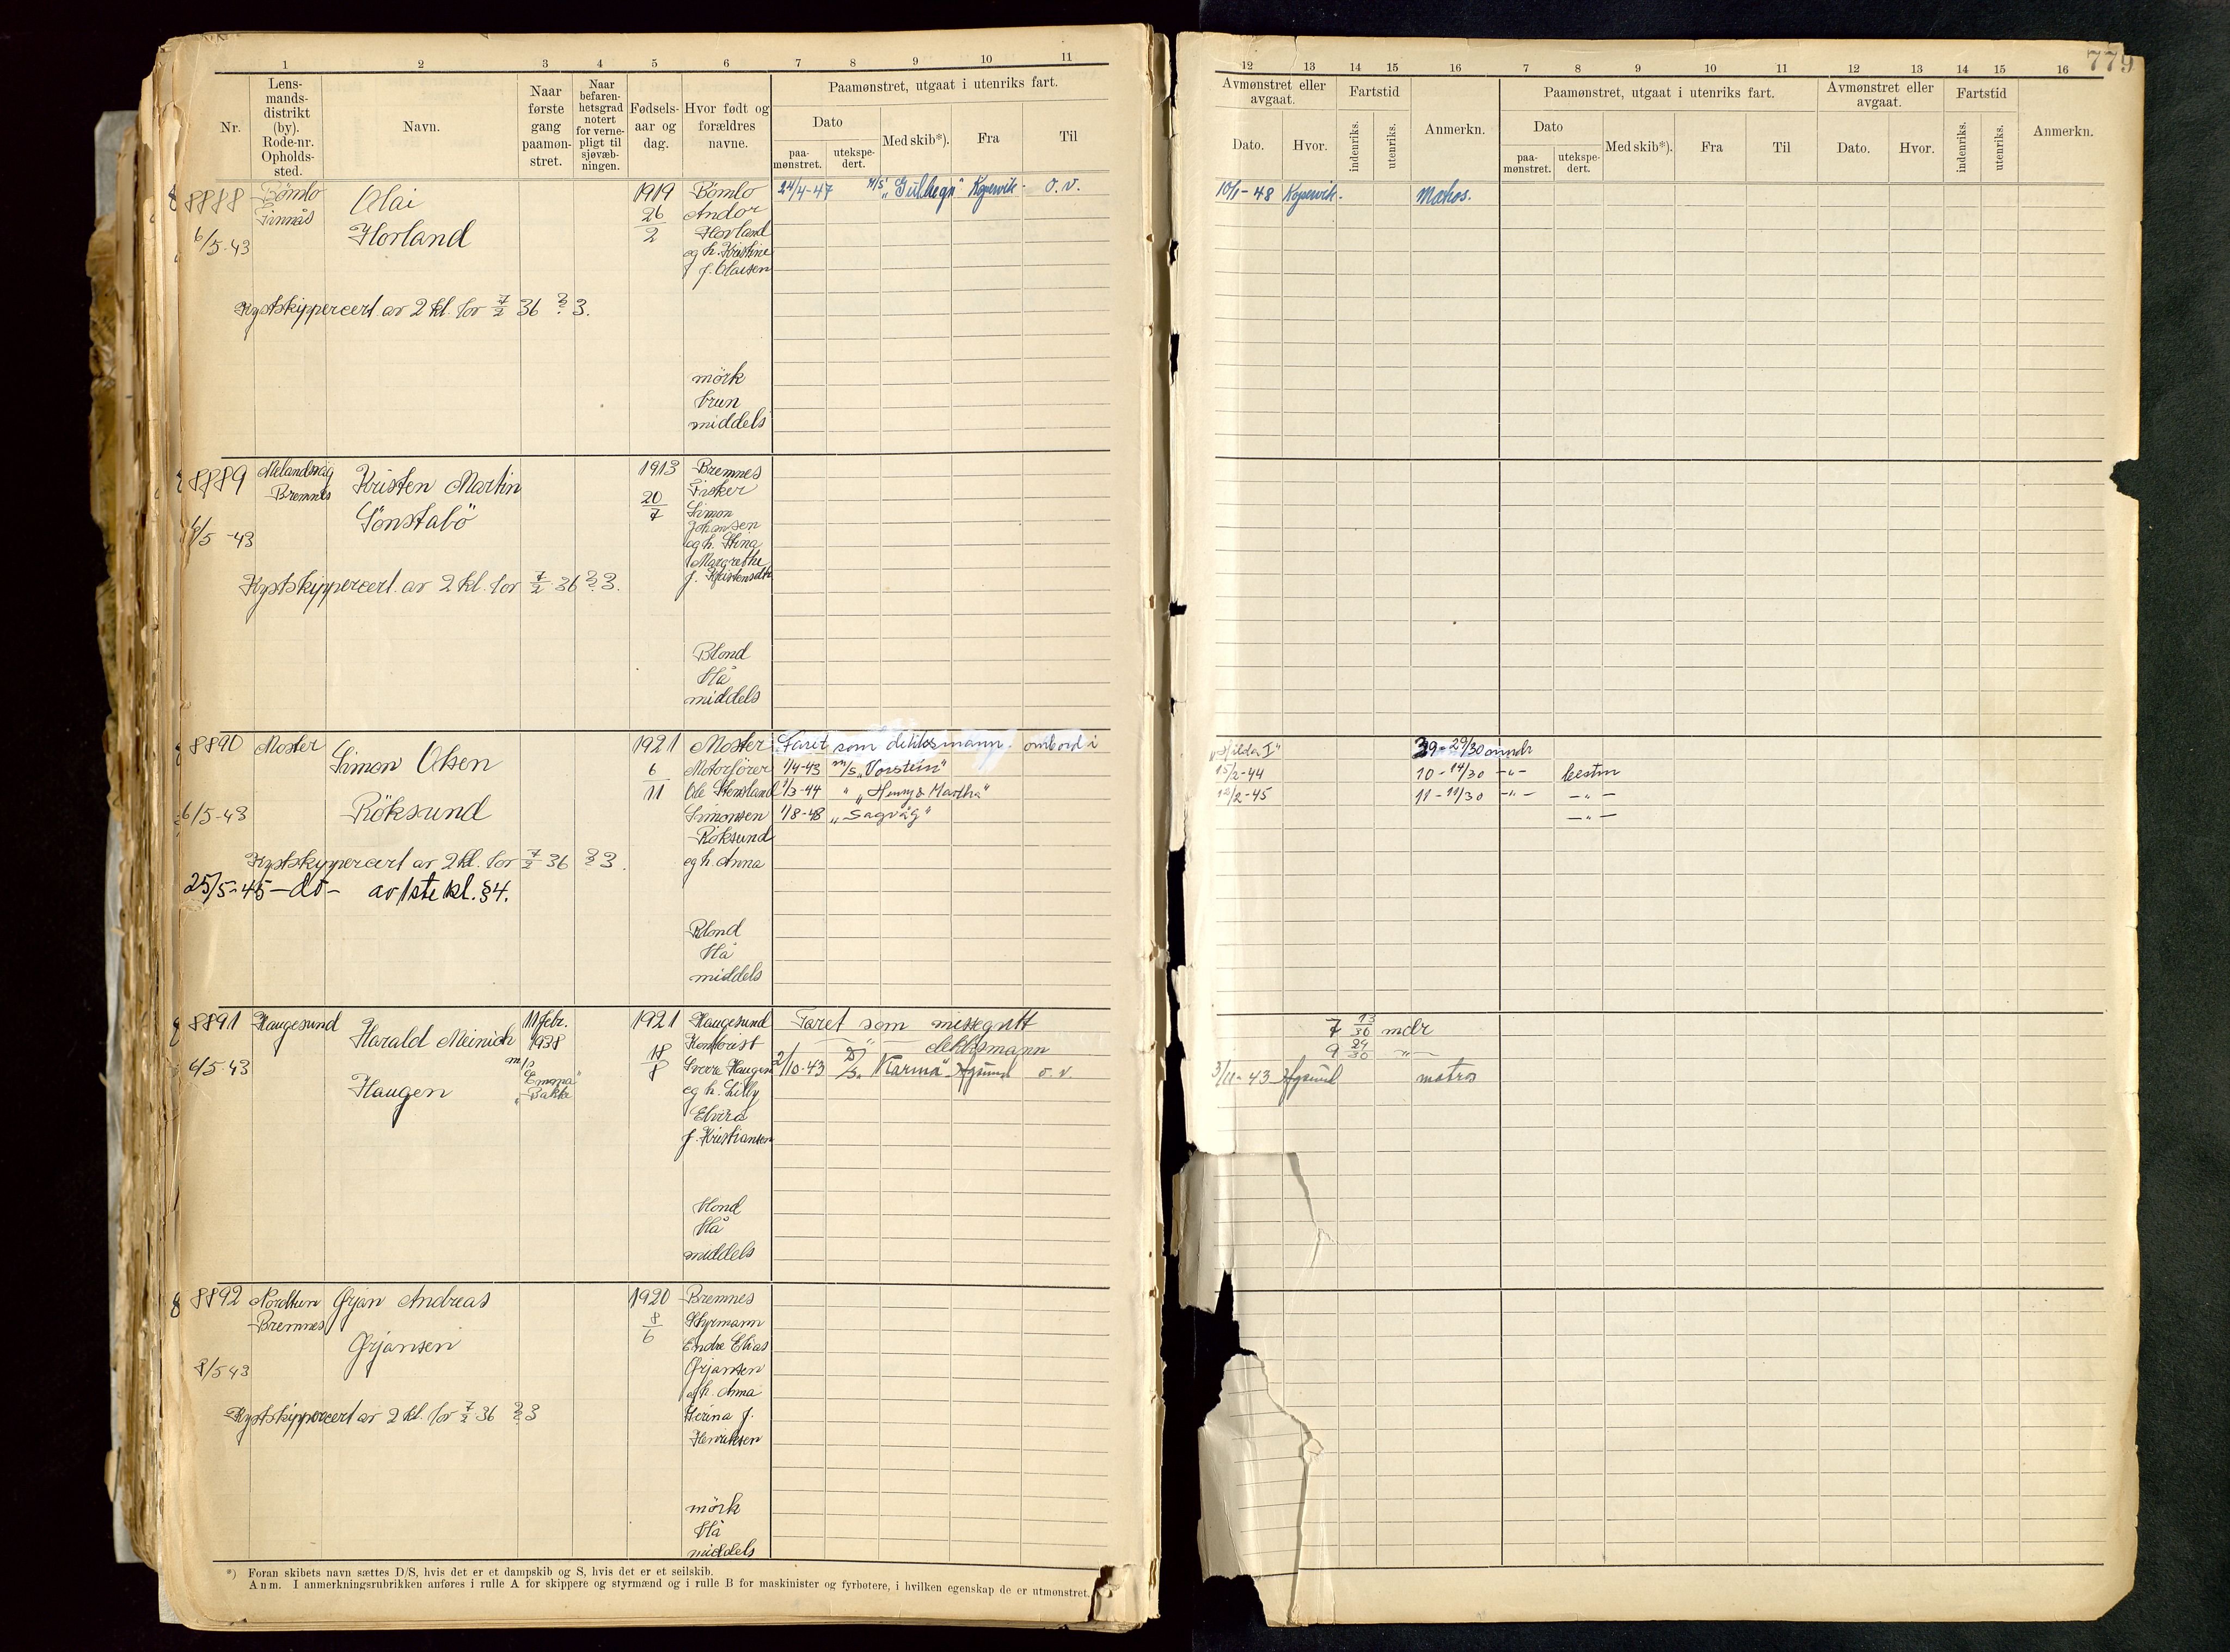 779
1 2 3 4 5 6 7 8 9 10 11
Nr.
Lens-
mands-
distrikt
(by).
Rode-nr.
Opholds-
sted.
Navn.
Naar
første
gang
paamøn-
stret.
Naar
befaren-
hetsgrad
notert
for verne-
pligt til
sjøvæb-
ningen.
Fødsels-
aar og
dag.
Hvor født og
forældres
navne.
Paamønstret, utgaat i utenriks fart.
Dato
paa-
mønstret.
utekspe-
dert.
Med skib*).
Fra
Til
12 13 14 15 16 7 8 9 10 11 12 13 14 15 16
Avmønstret eller
avgaat.
Dato.
Hvor.
Fartstid
indenriks.
utenriks.
Anmerkn.
Paamønstret, utgaat i utenriks fart.
Dato
paa-
mønstret.
utekspe-
dert.
Med skib*).
Fra
Til
Avmønstret eller
avgaat.
Dato.
Hvor.
Fartstid
indenriks.
utenriks.
Anmerkn.
8888
6/5-43
Bömlo
Finnås
Olai
Horland
1919
26
2
Bömlo
Andor
Horland
og h. Kristine
f. Olaisen
24/4-47 M/S Kopervik. o. v.
10/1-48 Kopervik. Matros.
Kystskippercert. av 2 kl. lov 7/2 36 § 3.
mörk
brun
middels
8889
/5-43
Melandsvåg
Bremnes
Kristen Martin
Sönstabö
1913
20
7
Bremnes
Fisker
Simon
Johansen
og h. Stina
Margrethe
f. Kristensdtr
Kystskippercert. av 2 kl. lov 7/2 36 § 3.
Blond
blå
middels
8890
6/5-43
Moster
Simon Olsen
Röksund
1921
6
11
Moster
Motorförer
Ole Stensland
Simonsen
Röksund
og h. Anna
Faret som dekksmann. ombord i
1/4-43 m/s "Vorstein"
1/3-44 " "Henry & Martha"
1/8-48 "Sagvåg"
"Hilda I" 39-29/30 mndr
15/2-44 10-14/30 -"- bestm
/2-45 11-11/30 -"- -"-
-"-
Kystskippercert av 2 kl. lov 7/2 36 § 3.
25/5-45 -do- av 1ste kl. § 4.
Blond
blå
middels
8891
6/5-43
Haugesund
Harald Meinich
Haugen
11 febr.
1938
m/s
"Emma
Bakke"
1921
18
8
Haugesund
Kontorist
Sverre Haugen
og h. Lilly
Elvira
f. Kristiansen
Faret som messegutt
-"- dekksmann
2/10-43 D/S "Karma" Hgsund o. v.
7 13/30 mdr
9 24/30 -"-
3/11-43 Hgsund matros
blond
blå
middels
8892
8/5 43
Nordtun
Bremnes
Ørjan Andreas
Ørjansen
1920
8
6
Bremnes
Styrmann
Endre Elias
Ørjansen
og h. Anna
Serina f.
Henriksen
Kystskippercert av 2 kl. lov 7/2 36 § 3
mörk
blå
middels
*) Foran skibets navn sættes D/S, hvis det er et dampskib og S, hvis det er et seilskib.
Anm. I anmerkningsrubrikken anføres i rulle A for skippere og styrmænd og i rulle B for maskinister og fyrbøtere, i hvilken egenskap de er utmønstret.